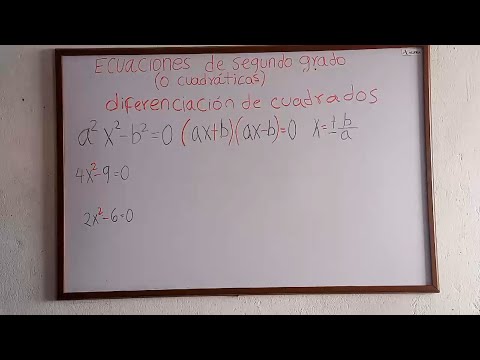 Ecuaciones de segundo grado
(o cuadráticas)
diferenciación de cuadrados
a² x² - b² = 0 (ax+b)(ax-b)=0 x = ± b/a
4x² - 9 = 0
2x² - 6 = 0